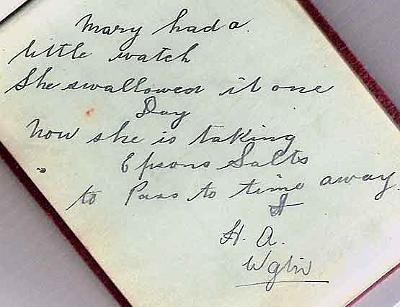 Mary had a
little watch
She swallowed it one
Day
Now she is taking
Epsons Salts
to Pass to time away.
H. A.
Wgtn